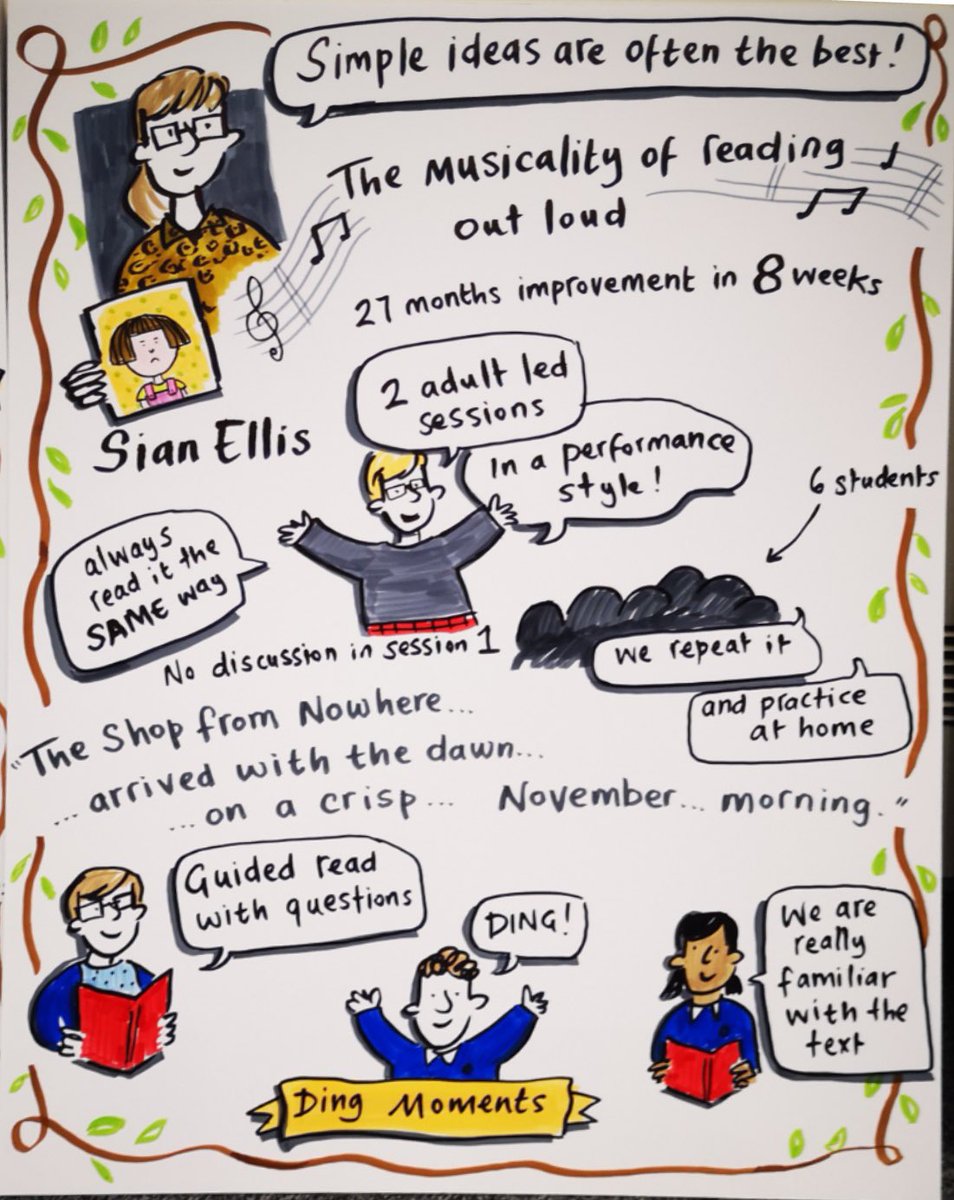 Simple ideas are often the best!
The musicality of reading
out loud
27 months improvement in 8 weeks
Sian Ellis
2 adult led
sessions
In a performance
style!
6 students
always
read it the
SAME way
No discussion in session 1
we repeat it
and practice
at home
"The Shop from Nowhere...
...arrived with the dawn...
...on a crisp... November... morning."
Guided read
with questions
DING!
We are
really
familiar
with the
text
Ding Moments